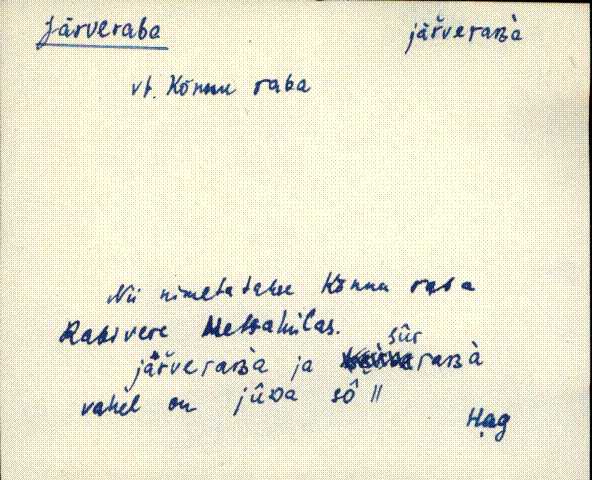 Järveraba järveraʙà
vt. Kõnnu raba
Nii nimetatakse Kõnnu raba
Rabivere Metsakülas.
sûr
järveraʙà ja raʙà
vahel on jûᴅa sô ||
Hag